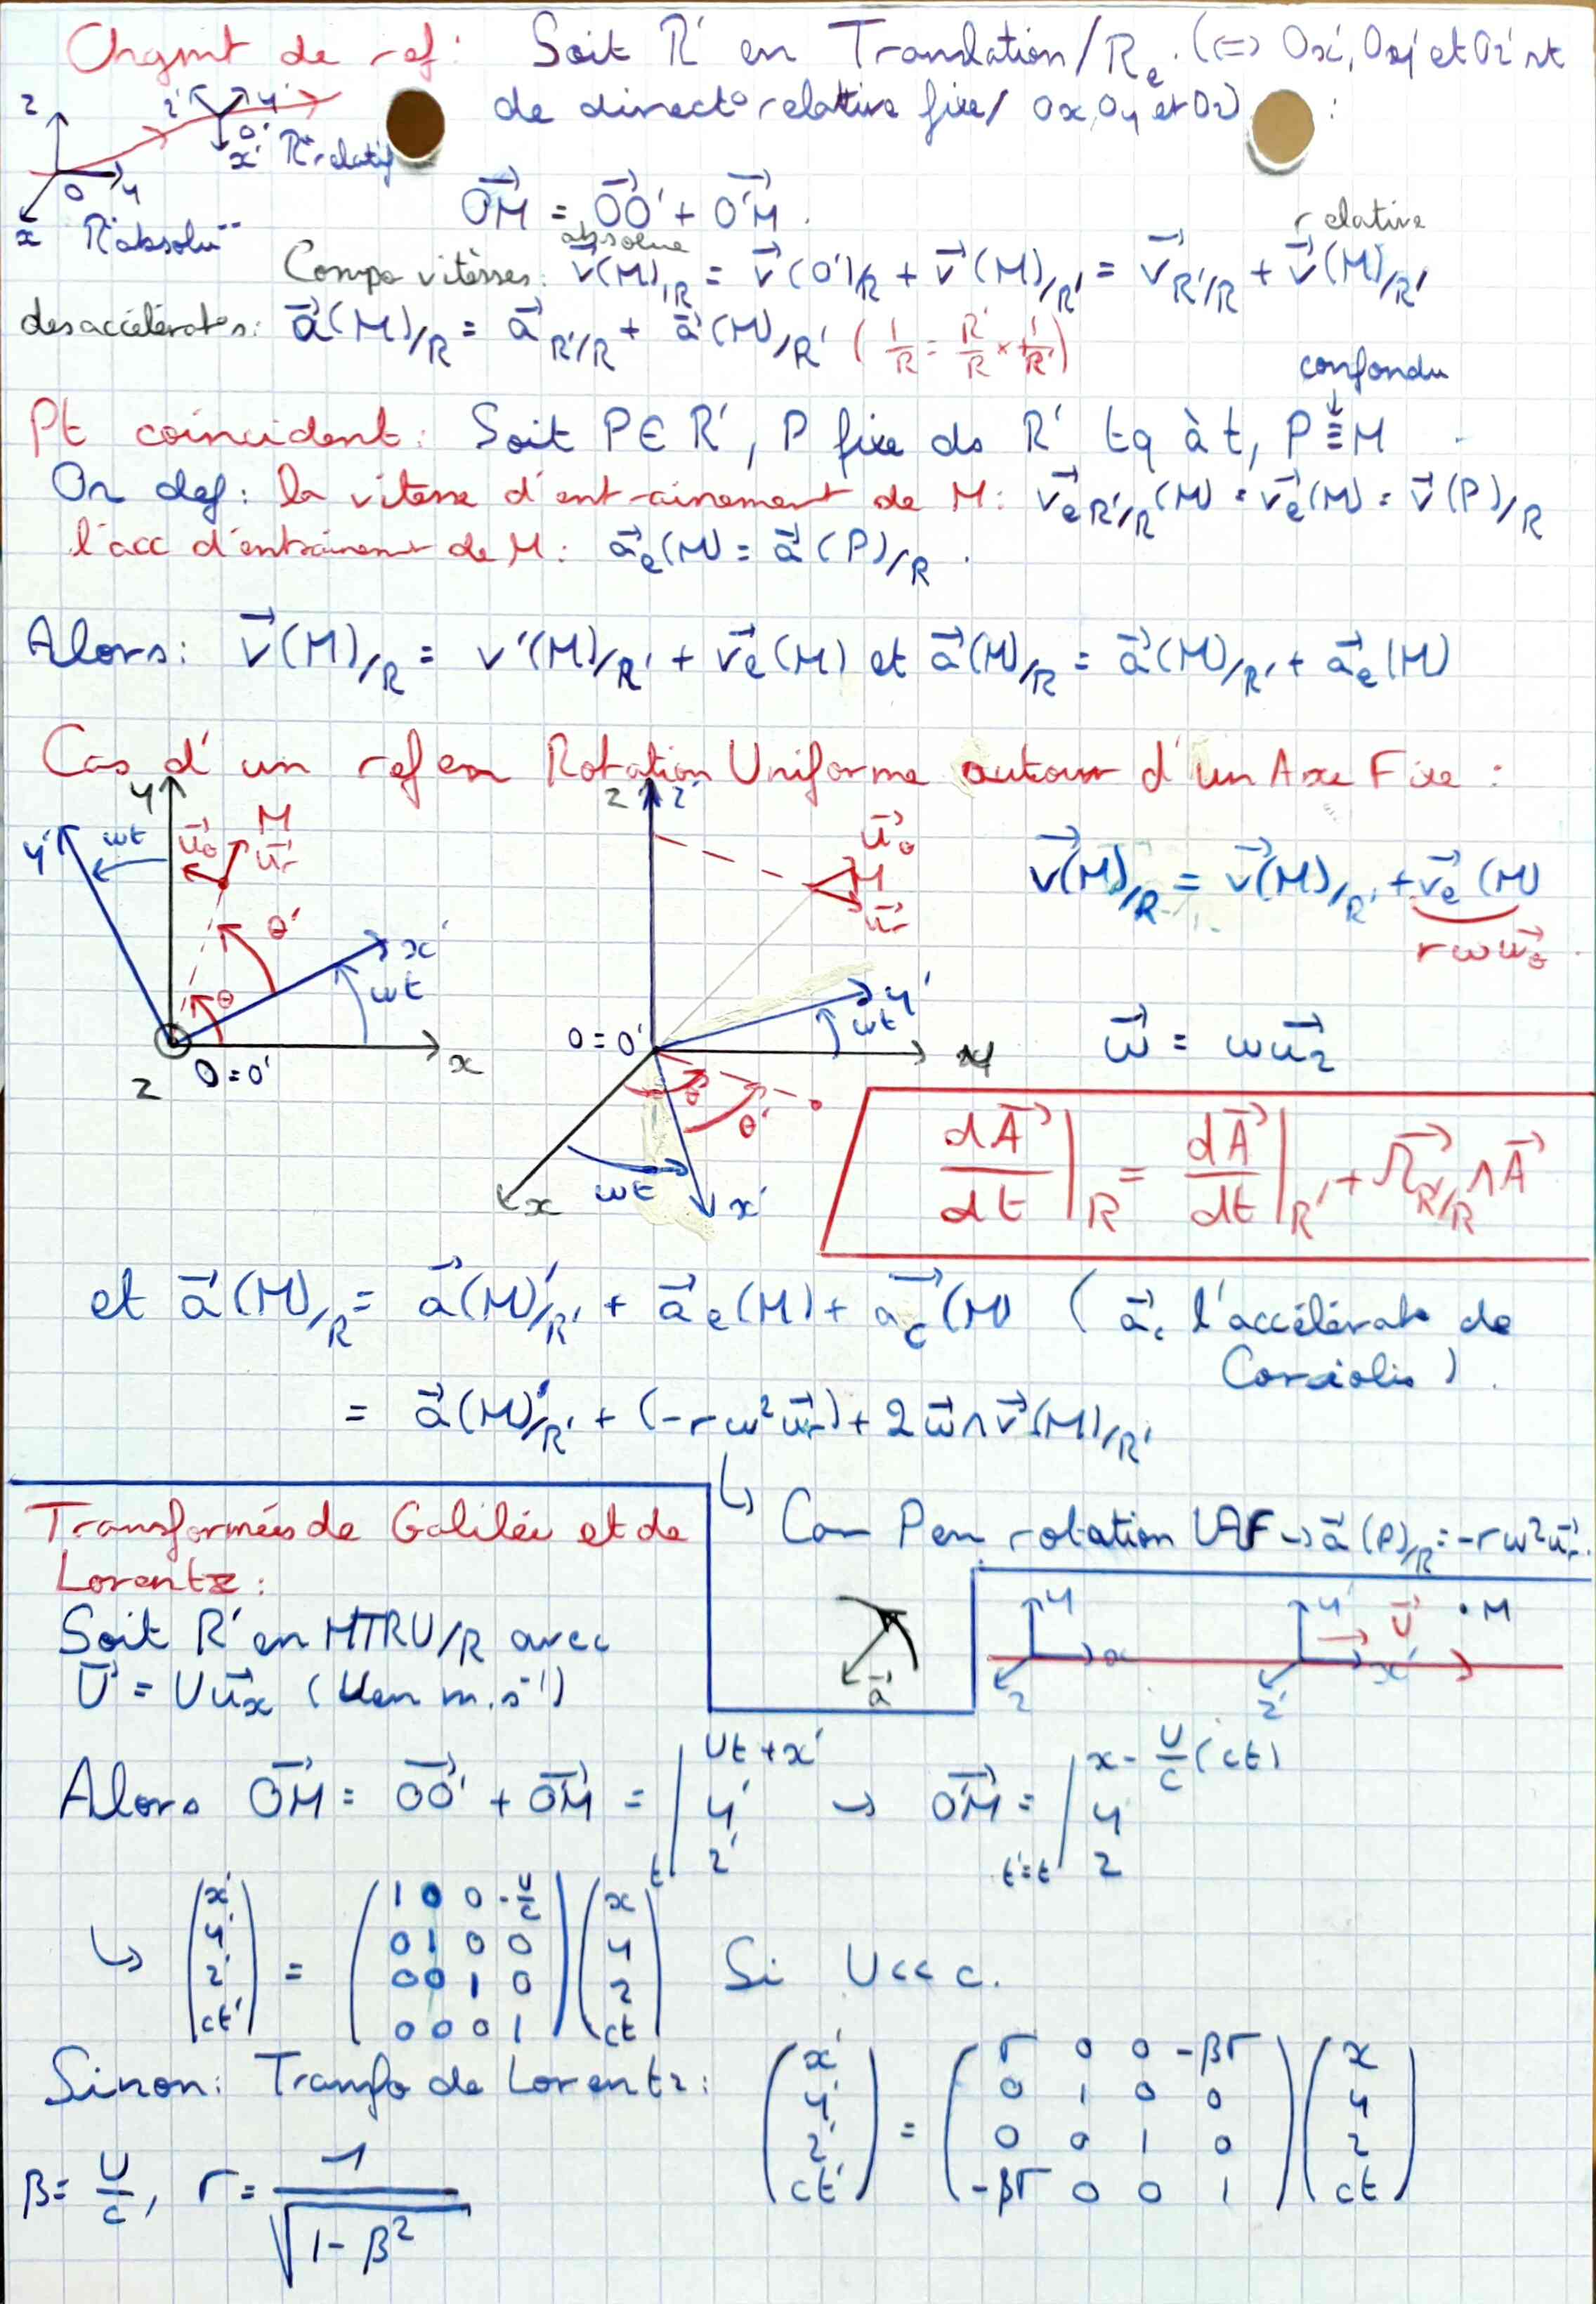 Chgmt de ref: Soit R' en Translation/R. (<=> Ox', Oy' et Oz' st
de direct° relative fixe/ Ox, Oy et Oz) :
z z' y' O' x' R' "relatif"
O y x R "absolu"
OM = OO' + O'M.
absolue relative
Compo vitesses: v(M)/R = v(O')/R + v(M)/R' = v R'/R + v(M)/R'
des accélérat°s: a(M)/R = a R'/R + a(M)/R' (1/R = R'/R × 1/R')
confondu
Pt coïncident: Soit P∈R', P fixe ds R' tq à t, P≡M.
On def: la vitesse d'entrainement de M: ve R'/R(M) = ve(M) = v(P)/R
l'acc d'entrainemt de M: ae(M) = a(P)/R.
Alors: v(M)/R = v'(M)/R' + ve(M) et a(M)/R = a(M)/R' + ae(M)
Cas d'un ref en Rotation Uniforme autour d'un Axe Fixe:
y y' ωt uθ M ur θ' θ x' ωt x z O=O'
z z' uθ M ur y' ωt y O=O' θ θ' ωt x x'
v(M)/R = v(M)/R' + ve(M)
rωuθ.
ω = ωuz
dA/dt|R = dA/dt|R' + Ω R'/R ∧ A
et a(M)/R = a(M)'/R' + ae(M) + ac(M) (ac l'accélérat° de
Corciolis).
= a(M)'/R' + (-rω²ur) + 2ω∧v(M)/R'
↳ Car P en rotation UAF → a(P)/R = -rω²ur.
a
Transformées de Galilée et de
Lorentz:
Soit R' en MTRU/R avec
U = Uux (U en m.s⁻¹)
y x z y' U x' z' .M
Alors OM = OO' + O'M = | Ut + x' y' z' t → O'M = | x - U/c (ct) y z t'=t
↳ (x' y' z' ct') = (1 0 0 -U/c
0 1 0 0
0 0 1 0
0 0 0 1) (x y z ct) Si U<<c.
Sinon: Transfo de Lorentz: (x' y' z' ct') = (Γ 0 0 -βΓ
0 1 0 0
0 0 1 0
-βΓ 0 0 1) (x y z ct)
β = U/c, Γ = 1/√(1-β²)